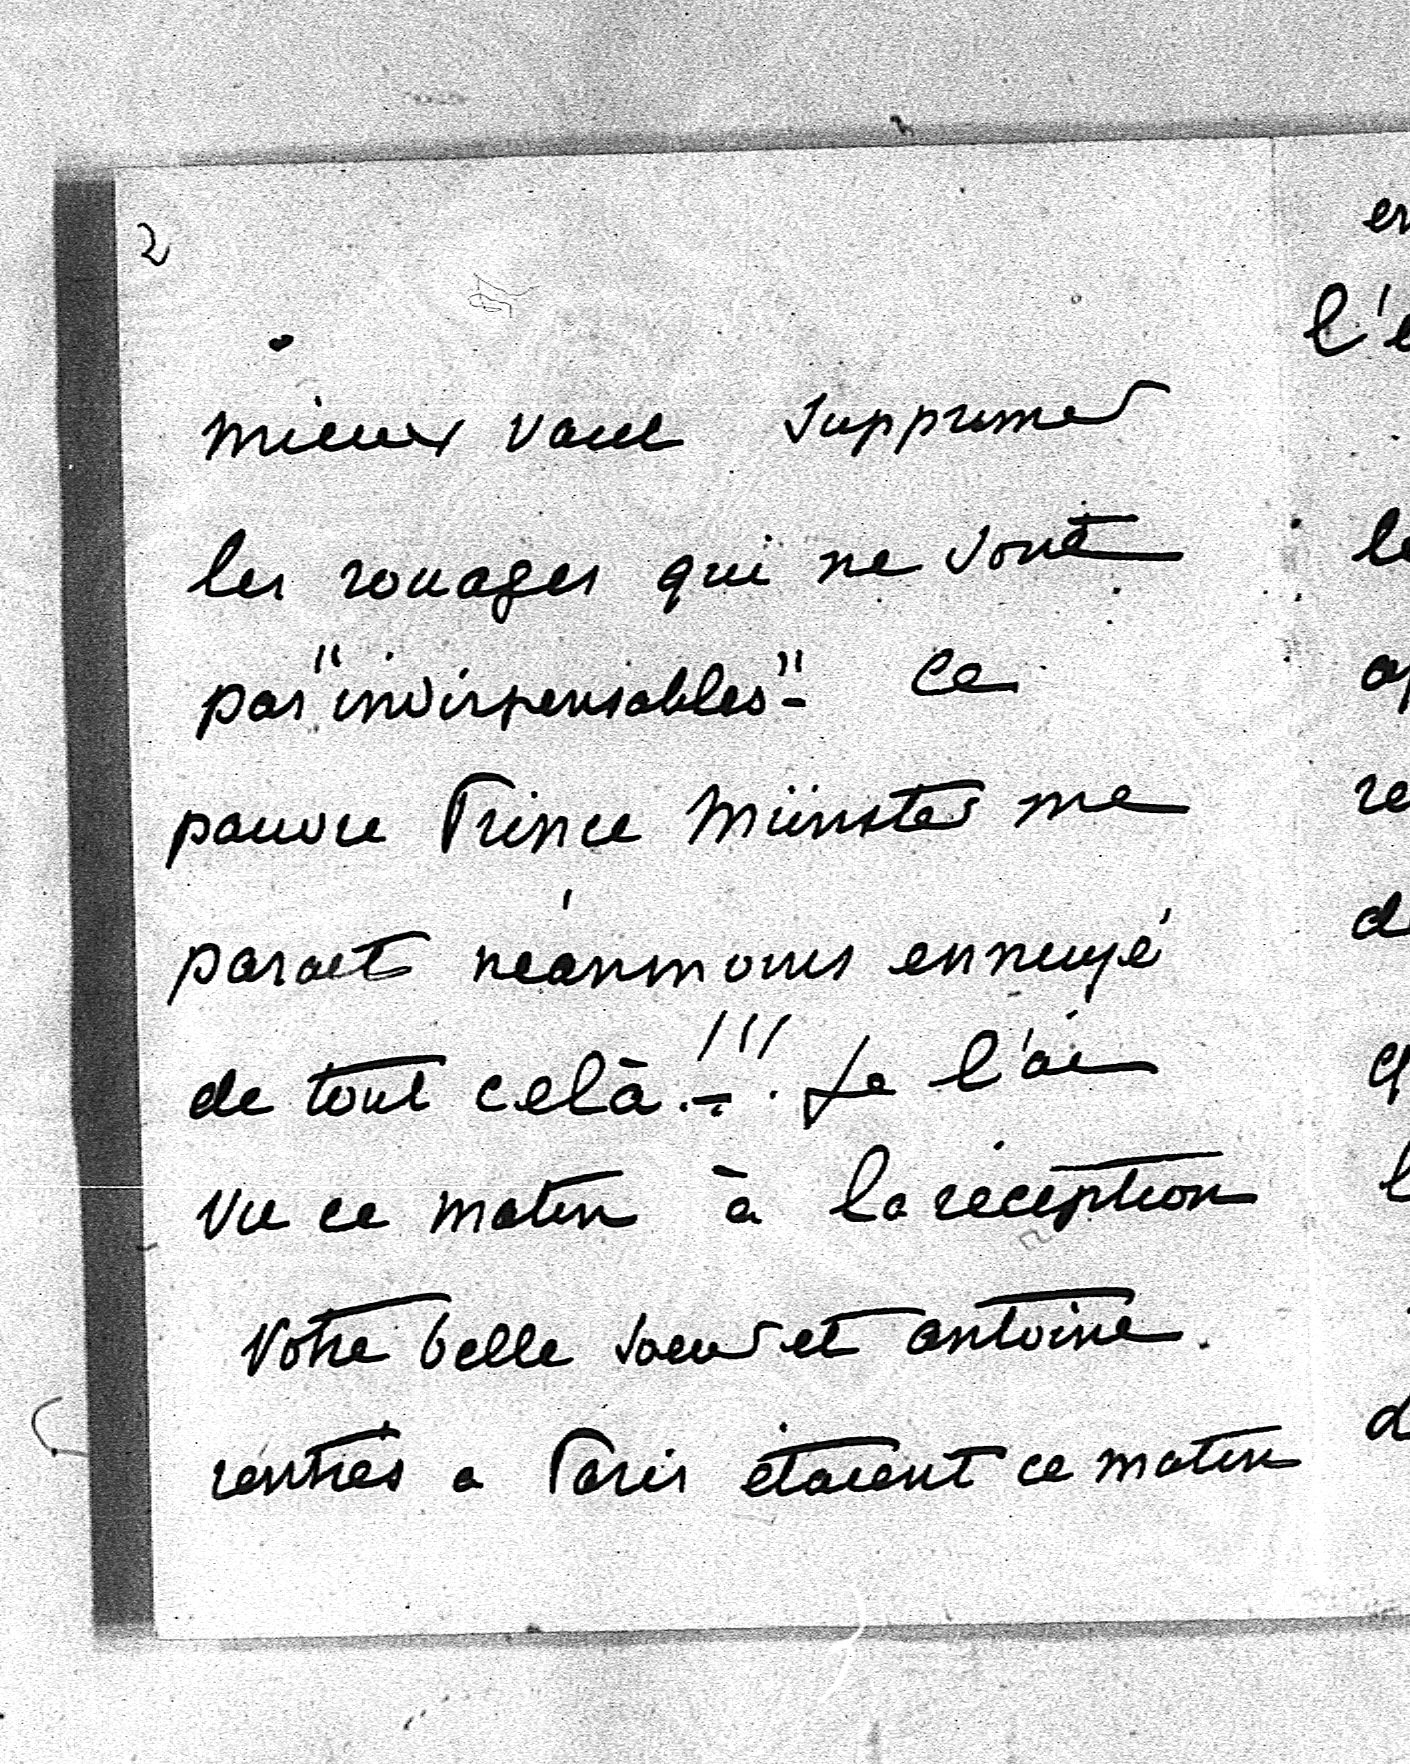 2
mieux vaut supprimer
les rouages qui ne sont
pas "indispensables" - Ce
pauvre Prince Münster me
parait néanmoins ennuyé
de tout celà !!! - Je l'ai
vu ce matin à la réception
Votre belle soeur et antoine.
rentrés a Paris étaient ce matin